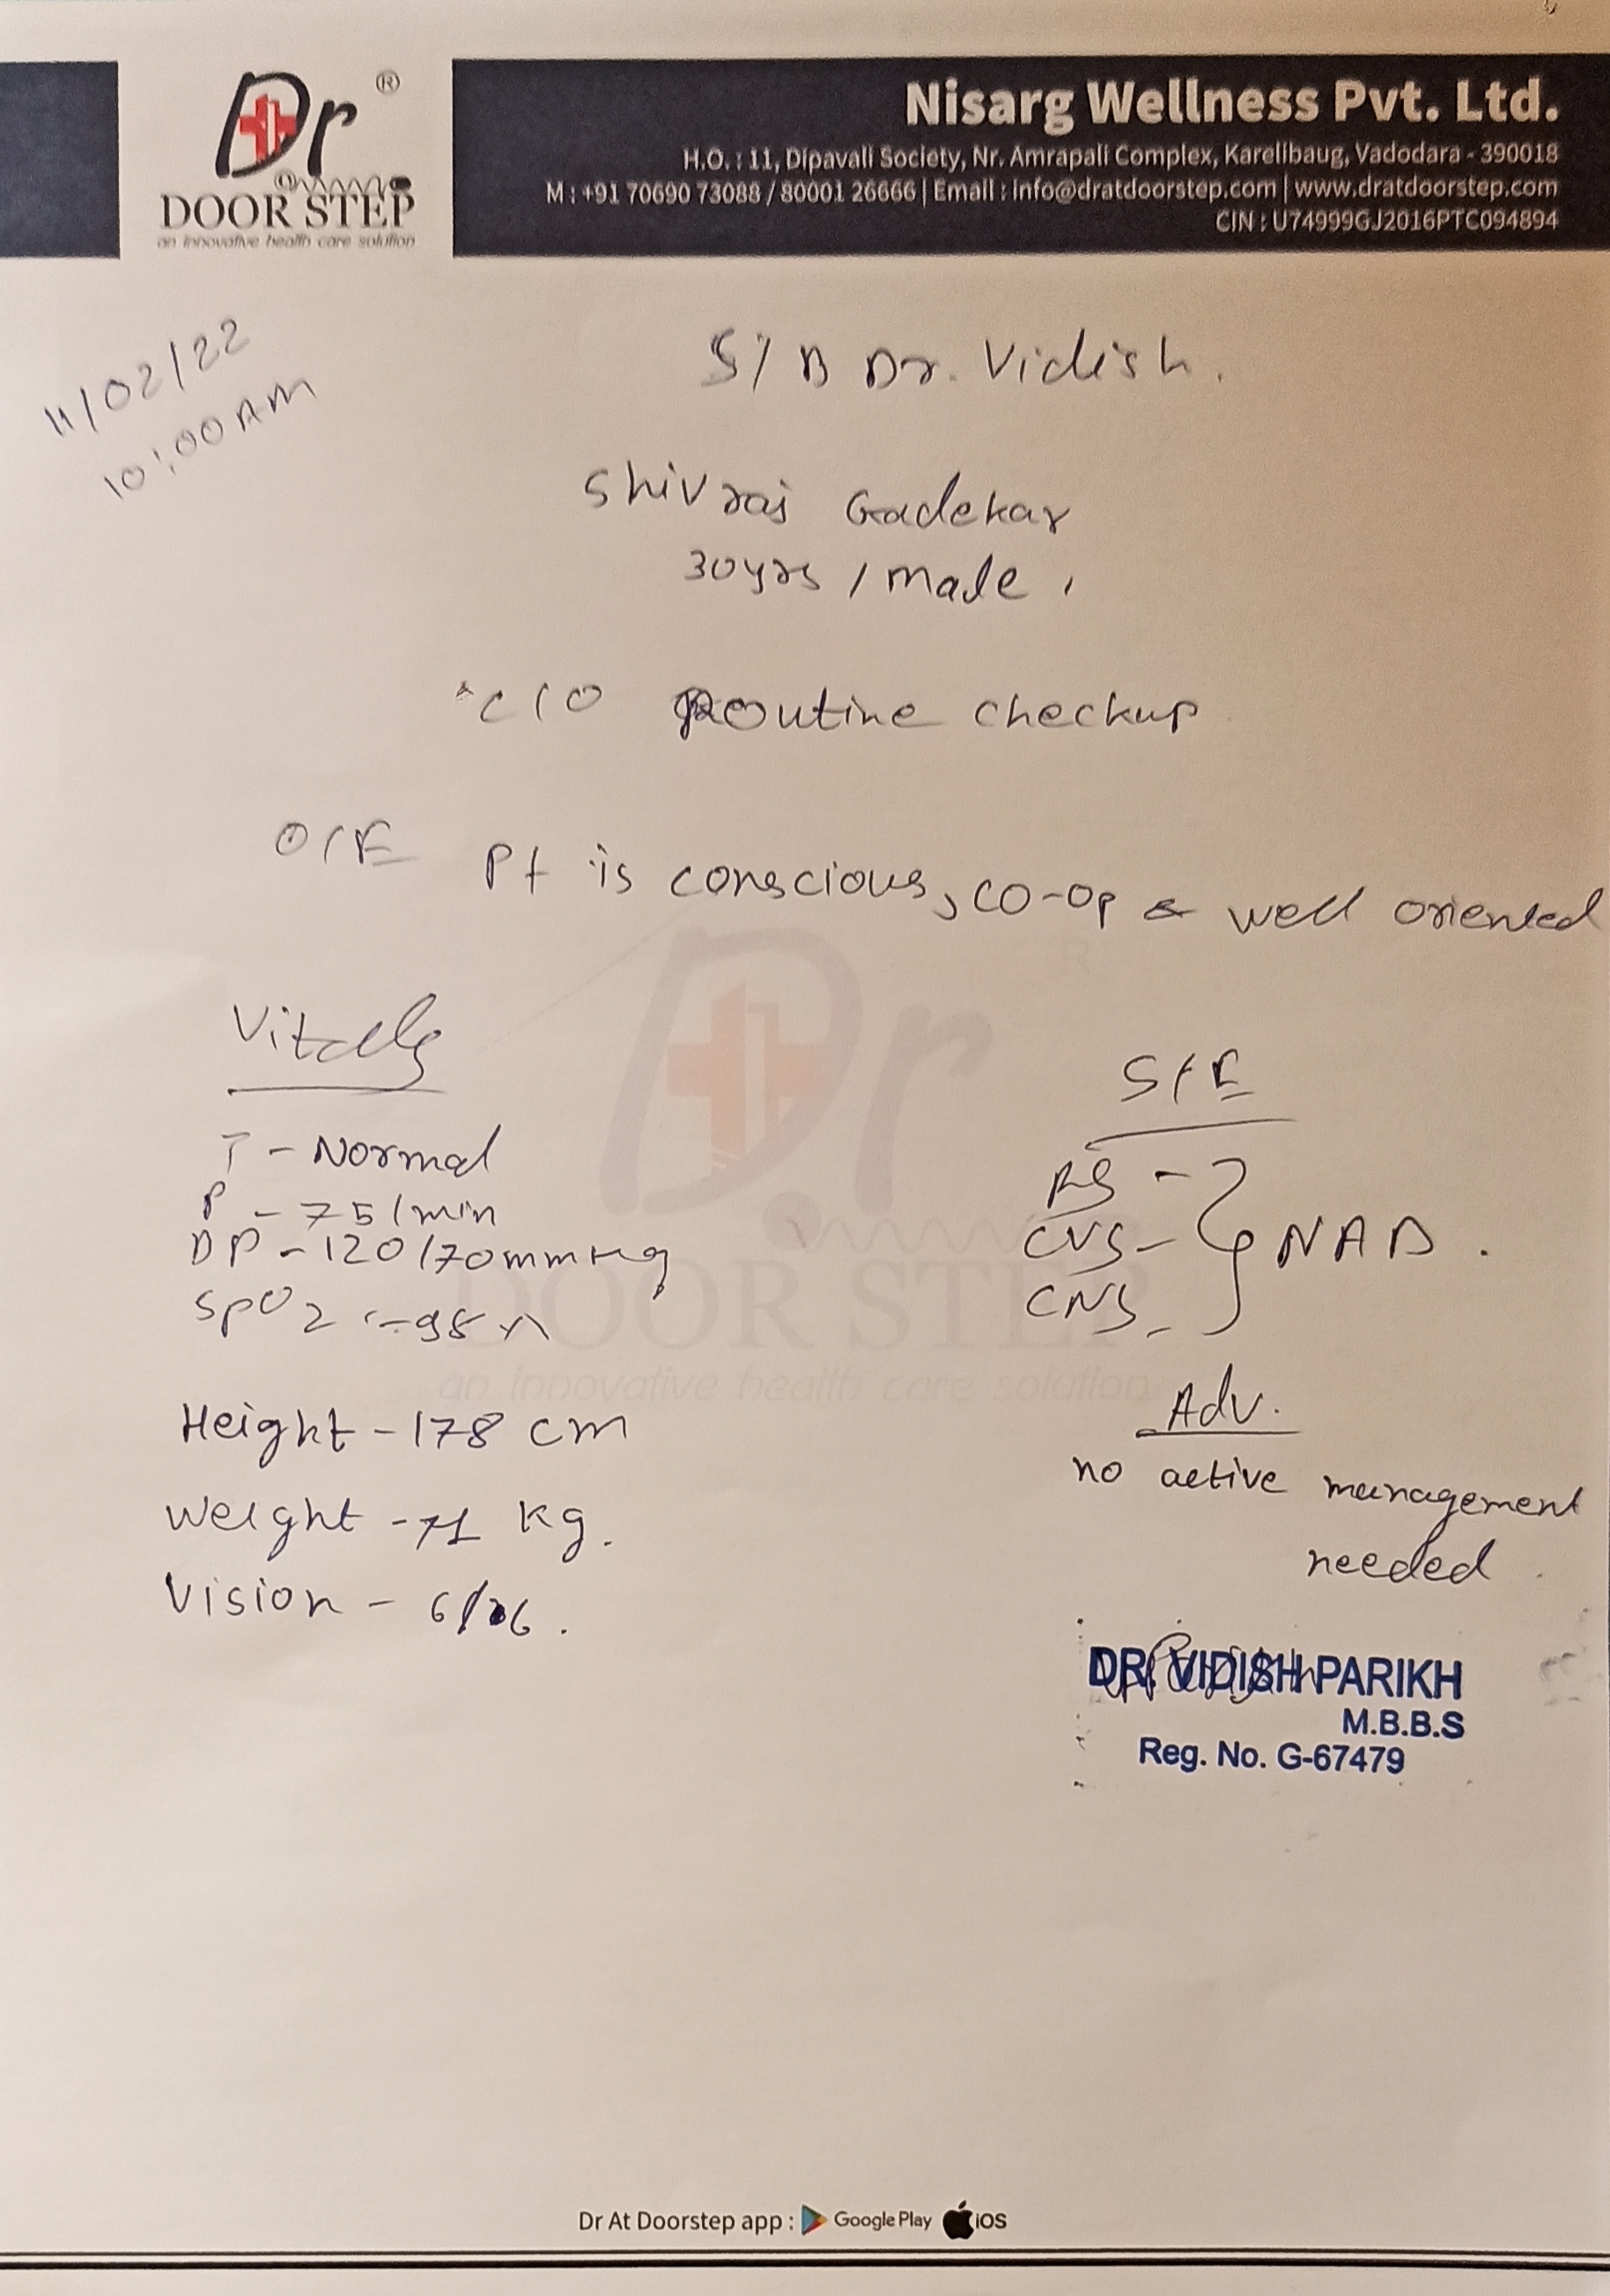 Dr ®
DOOR STEP
an innovative health care solution
Nisarg Wellness Pvt. Ltd.
H.O. : 11, Dipavali Society, Nr. Amrapali Complex, Karelibaug, Vadodara - 390018
M : +91 70690 73088 / 80001 26666 | Email : info@dratdoorstep.com | www.dratdoorstep.com
CIN : U74999GJ2016PTC094894
11/02/22
10:00 AM
S/B Dr. Vidish.
Shivraj Gadekar
30yrs / male
C/O Routine checkup
O/E Pt is conscious, co-op & well oriented
Vitals
T - Normal
P - 75/min
BP - 120/70mmHg
SpO2 - 98%
Height - 178 cm
Weight - 71 kg.
Vision - 6/6.
S/E
RS -
CVS - } NAD.
CNS -
Adv.
no active management
needed.
DR. VIDISH PARIKH
M.B.B.S
Reg. No. G-67479
Dr ®
DOOR STEP
an innovative health care solution
Dr At Doorstep app : Google Play iOS